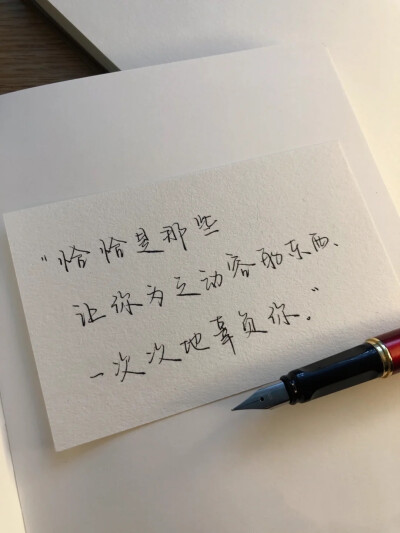 "恰恰是那些
让你为之动容的东西、
一次次地辜负你。"